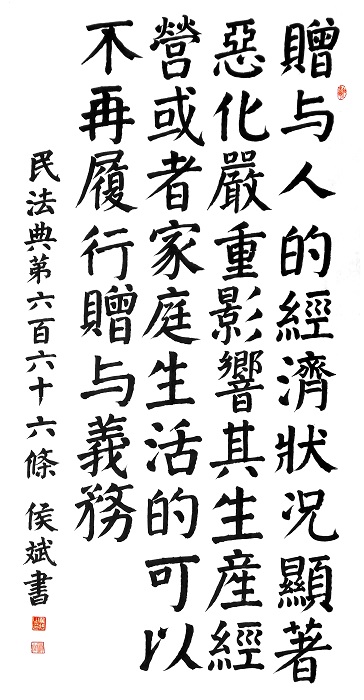 贈与人的經濟狀况顯著
惡化嚴重影響其生産經
營或者家庭生活的可以
不再履行贈与義務
民法典第六百六十六條 侯斌書